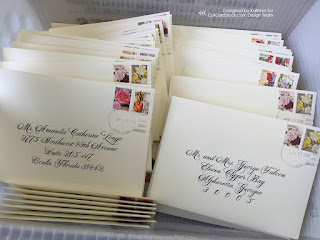 Designed by Kathryn for
CutCardStock.com Design Team
Ms. Amanda Catherine Lange
2175 Northwest 49th Avenue
Ocala Florida 34482
Mr. and Mrs. George Falcon
Eleven Clipper Bay
Alpharetta, Georgia
30005